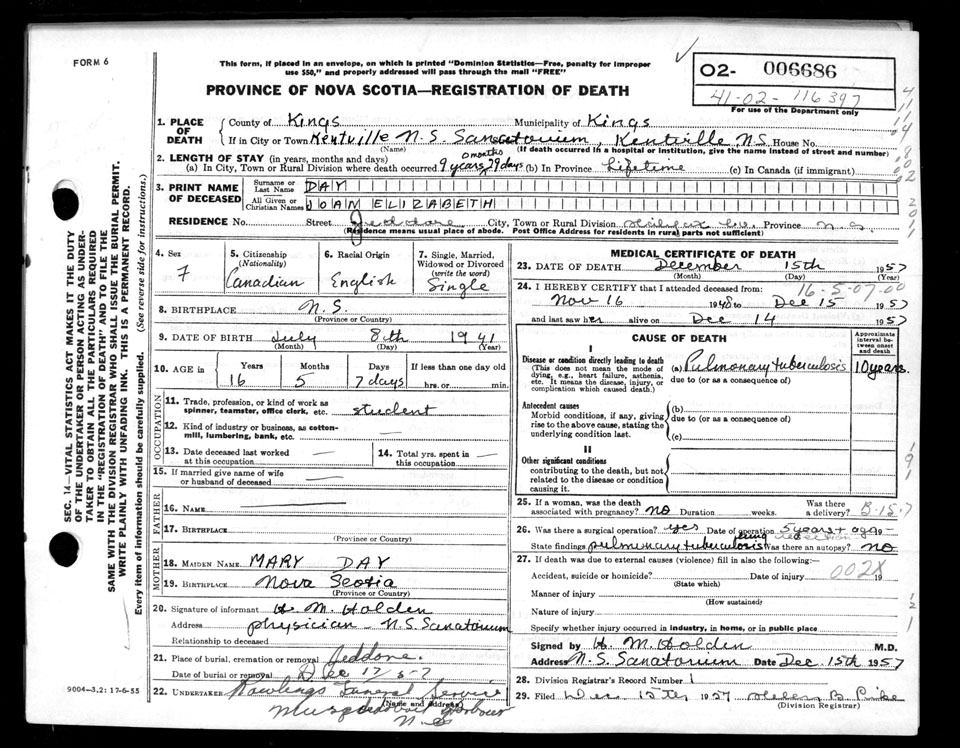 FORM 6
This form, if placed in an envelope, on which is printed "Dominion Statistics—Free, penalty for improper
use $50," and properly addressed will pass through the mail "FREE"
PROVINCE OF NOVA SCOTIA—REGISTRATION OF DEATH
O2- 006686
41-02-116397
For use of the Department only
1. PLACE OF DEATH
County of Kings Municipality of Kings
If in City or Town Kentville N.S. Sanatorium, Kentville, N.S. House No.
(Name) (If death occurred in a hospital or institution, give the name instead of street and number)
2. LENGTH OF STAY (in years, months and days)
(a) In City, Town or Rural Division where death occurred 9 years 0 months 29 days (b) In Province Lifetime (c) In Canada (if immigrant)
3. PRINT NAME OF DECEASED
Surname or Last Name DAY
All Given or Christian Names JOAN ELIZABETH
RESIDENCE No. Street Jeddore City, Town or Rural Division Halifax Co. Province N.S.
(Residence means usual place of abode. Post Office Address for residents in rural parts not sufficient)
4. Sex
F
5. Citizenship
(Nationality)
Canadian
6. Racial Origin
English
7. Single, Married,
Widowed or Divorced
(write the word)
Single
8. BIRTHPLACE N.S.
(Province or Country)
9. DATE OF BIRTH July 8th 1941
(Month) (Day) (Year)
10. AGE in Years Months Days If less than one day old
16 5 7 days hrs. or min.
OCCUPATION
11. Trade, profession, or kind of work as
spinner, teamster, office clerk, etc. student
12. Kind of industry or business, as cotton-
mill, lumbering, bank, etc. —
13. Date deceased last worked
at this occupation —
14. Total yrs. spent in
this occupation —
15. If married give name of wife
or husband of deceased —
FATHER
16. Name —
17. Birthplace
(Province or Country)
MOTHER
18. MAIDEN NAME MARY DAY
19. BIRTHPLACE Nova Scotia
(Province or Country)
20. Signature of informant H. M. Holden
Address physician N.S. Sanatorium
Relationship to deceased
21. Place of burial, cremation or removal Jeddore.
Date of burial or removal Dec 17-5-7
22. UNDERTAKER Rawlings Funeral Service
(Name and Address)
Musquodoboit Harbour
N.S.
9004-3.2: 17-6-55
MEDICAL CERTIFICATE OF DEATH
23. DATE OF DEATH December 15th 1957
(Month) (Day) (Year)
24. I HEREBY CERTIFY that I attended deceased from:
16-5-07.00
Nov 16 1948 to Dec 15 1957
and last saw her alive on Dec 14 1957
CAUSE OF DEATH
Approximate interval between onset and death
I
Disease or condition directly leading to death
(This does not mean the mode of
dying, e.g., heart failure, asthenia,
etc. It means the disease, injury, or
complication which caused death.)
(a) Pulmonary tuberculosis 10 years.
due to (or as a consequence of)
Antecedent causes
Morbid conditions, if any, giving
rise to the above cause, stating the
underlying condition last.
(b)
due to (or as a consequence of)
(c)
II
Other significant conditions
contributing to the death, but not
related to the disease or condition
causing it.
25. If a woman, was the death
associated with pregnancy? no Duration weeks. Was there
a delivery?
B-15-7
26. Was there a surgical operation? yes Date of operation 5 years + ago
lung resection
State findings pulmonary tuberculosis Was there an autopsy? no
27. If death was due to external causes (violence) fill in also the following:
002X
Accident, suicide or homicide? Date of injury 19
(State which)
Manner of injury
(How sustained)
Nature of injury
Specify whether injury occurred in industry, in home, or in public place
Signed by H. M. Holden M.D.
Address N.S. Sanatorium Date Dec. 15th 1957
28. Division Registrar's Record Number 1
29. Filed Dec 15th 1957 Helen B. Pike
(Division Registrar)
SEC. 14—VITAL STATISTICS ACT MAKES IT THE DUTY
OF THE UNDERTAKER OR PERSON ACTING AS UNDER-
TAKER TO OBTAIN ALL THE PARTICULARS REQUIRED
IN THE "REGISTRATION OF DEATH" AND TO FILE THE
SAME WITH THE DIVISION REGISTRAR WHO SHALL ISSUE THE BURIAL PERMIT.
WRITE PLAINLY WITH UNFADING INK. THIS IS A PERMANENT RECORD.
Every item of information should be carefully supplied. (See reverse side for instructions.)